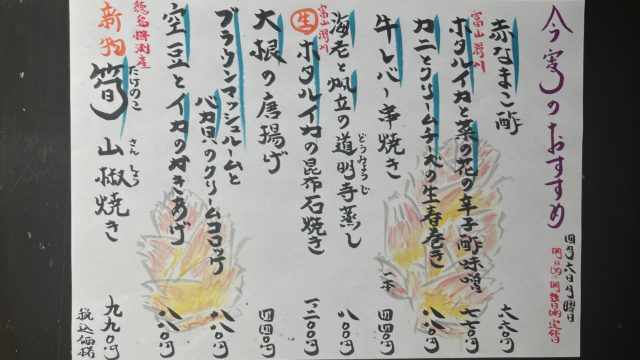 今宵のおすすめ
四月六日月曜日
明日(火)明後日(水)定休日
赤なまこ酢 六六〇円
富山滑川
ホタルイカと菜の花の辛子酢味噌 七七〇円
カニとクリームチーズの生春巻き 八八〇円
牛レバー串焼き 一本 四四〇円
海老と帆立の道明寺蒸し 八八〇円
どうみょうじ
富山滑川
生ホタルイカの昆布石焼き 一、三二〇〇円
大根の唐揚げ 四四〇円
ブラウンマッシュルームと
バカ貝のクリームコロッケ 八八〇円
空豆とイカのかきあげ 八八〇円
徳島
新物 筍 山椒焼き 九九〇円
たけのこ
さんしょう
税込価格